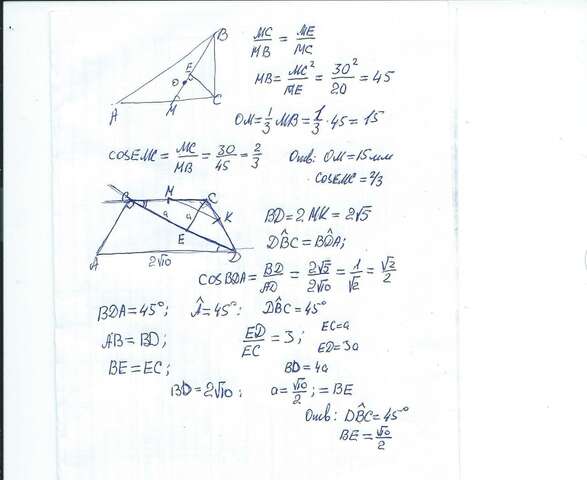 B
E
O
A
M
C
MC/MB = ME/MC
MB = MC²/ME = 30²/20 = 45
OM = 1/3 MB = 1/3 · 45 = 15
cosEMC = MC/MB = 30/45 = 2/3
Отв: OM = 15 мм
cosEMC = 2/3
B
M
C
K
a
a
E
A
D
2√10
BD = 2·MK = 2√5
DB̂C = BD̂A;
cosBDA = BD/AD = 2√5/2√10 = 1/√2 = √2/2
BDA = 45°; Â = 45°: DB̂C = 45°
AB = BD; ED/EC = 3; EC = a
ED = 3a
BE = EC; BD = 4a
BD = 2√10; a = √10/2; = BE
Отв: DB̂C = 45°
BE = √10/2